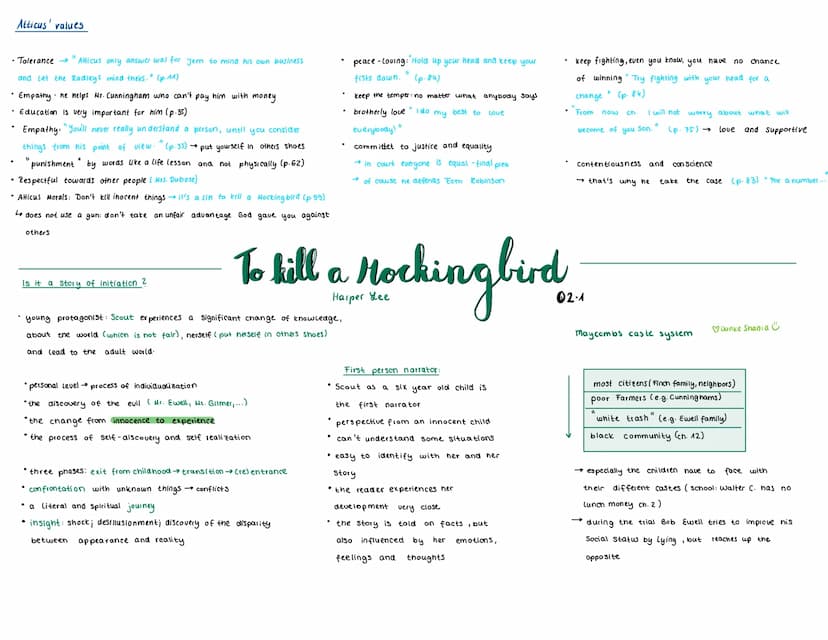 Atticus' values
• Tolerance → "Atticus only answer was for Jem to mind his own business
and let the Radleys mind theirs." (p.11)
• Empathy: he helps Mr. Cunningham who can't pay him with money
• Education is very important for him (p.35)
• Empathy: "You'll never really understand a person, until you consider
things from his point of view." (p.33) → put yourself in others shoes
• "punishment" by words like a life lesson and not physically (p.62)
• Respectful towards other people (Mrs. Dubose)
• Atticus Morals: Don't kill inocent things → it's a sin to kill a Mockingbird (p.99)
↳ does not use a gun: don't take an unfair advantage God gave you against
others
• peace-loving: "Hold up your head and keep your
fists down." (p.84)
• keep the temper no matter what anybody says
• brotherly love "I do my best to love
everybody"
• committet to justice and equality
→ in court everyone is equal -final
→ of cause he defends Tom Robinson
• keep fighting, even you know, you have no chance
of winning "Try fighting with your head for a
change" (p. 84)
• "From now on I will not worry about what will
become of you son." (p. 35) → love and supportive
• contentiousness and conscience
→ that's why he take the case (p. 83) "For a number...
To kill a Mockingbird
Harper Lee
02.1
Is it a story of initiation?
• young protagonist: Scout experiences a significant change of knowledge,
about the world (which is not fair), herself (put herself in others shoes)
and lead to the adult world.
• personal level → process of individualization
• the discovery of the evil (Mr. Ewell, Mr. Gilmer,...)
• the change from innocence to experience
• the process of self-discovery and self realization
• three phases: exit from childhood → transition → (re)entrance
• confrontation with unknown things → conflicts
• a literal and spiritual journey
• insight: shock; desillusionment; discovery of the disparity
between appearance and reality
First person narrator:
• Scout as a six year old child is
the first narrator
• perspective from an innocent child
• can't understand some situations
• easy to identify with her and her
story
• the reader experiences her
development very close
• the story is told on facts, but
also influenced by her emotions,
feelings and thoughts
Maycombs caste system
♡ Danke Shania ☺
most citizens (Finch family, neighbors)
poor Farmers (e.g. Cunninghams)
"white trash" (e.g. Ewell family)
black community (ch. 12)
→ especially the children have to face with
their different castes (school: Walter C. has no
lunch money ch. 2)
→ during the trial Bob Ewell tries to improve his
Social Status by lying, but reaches up the
opposite